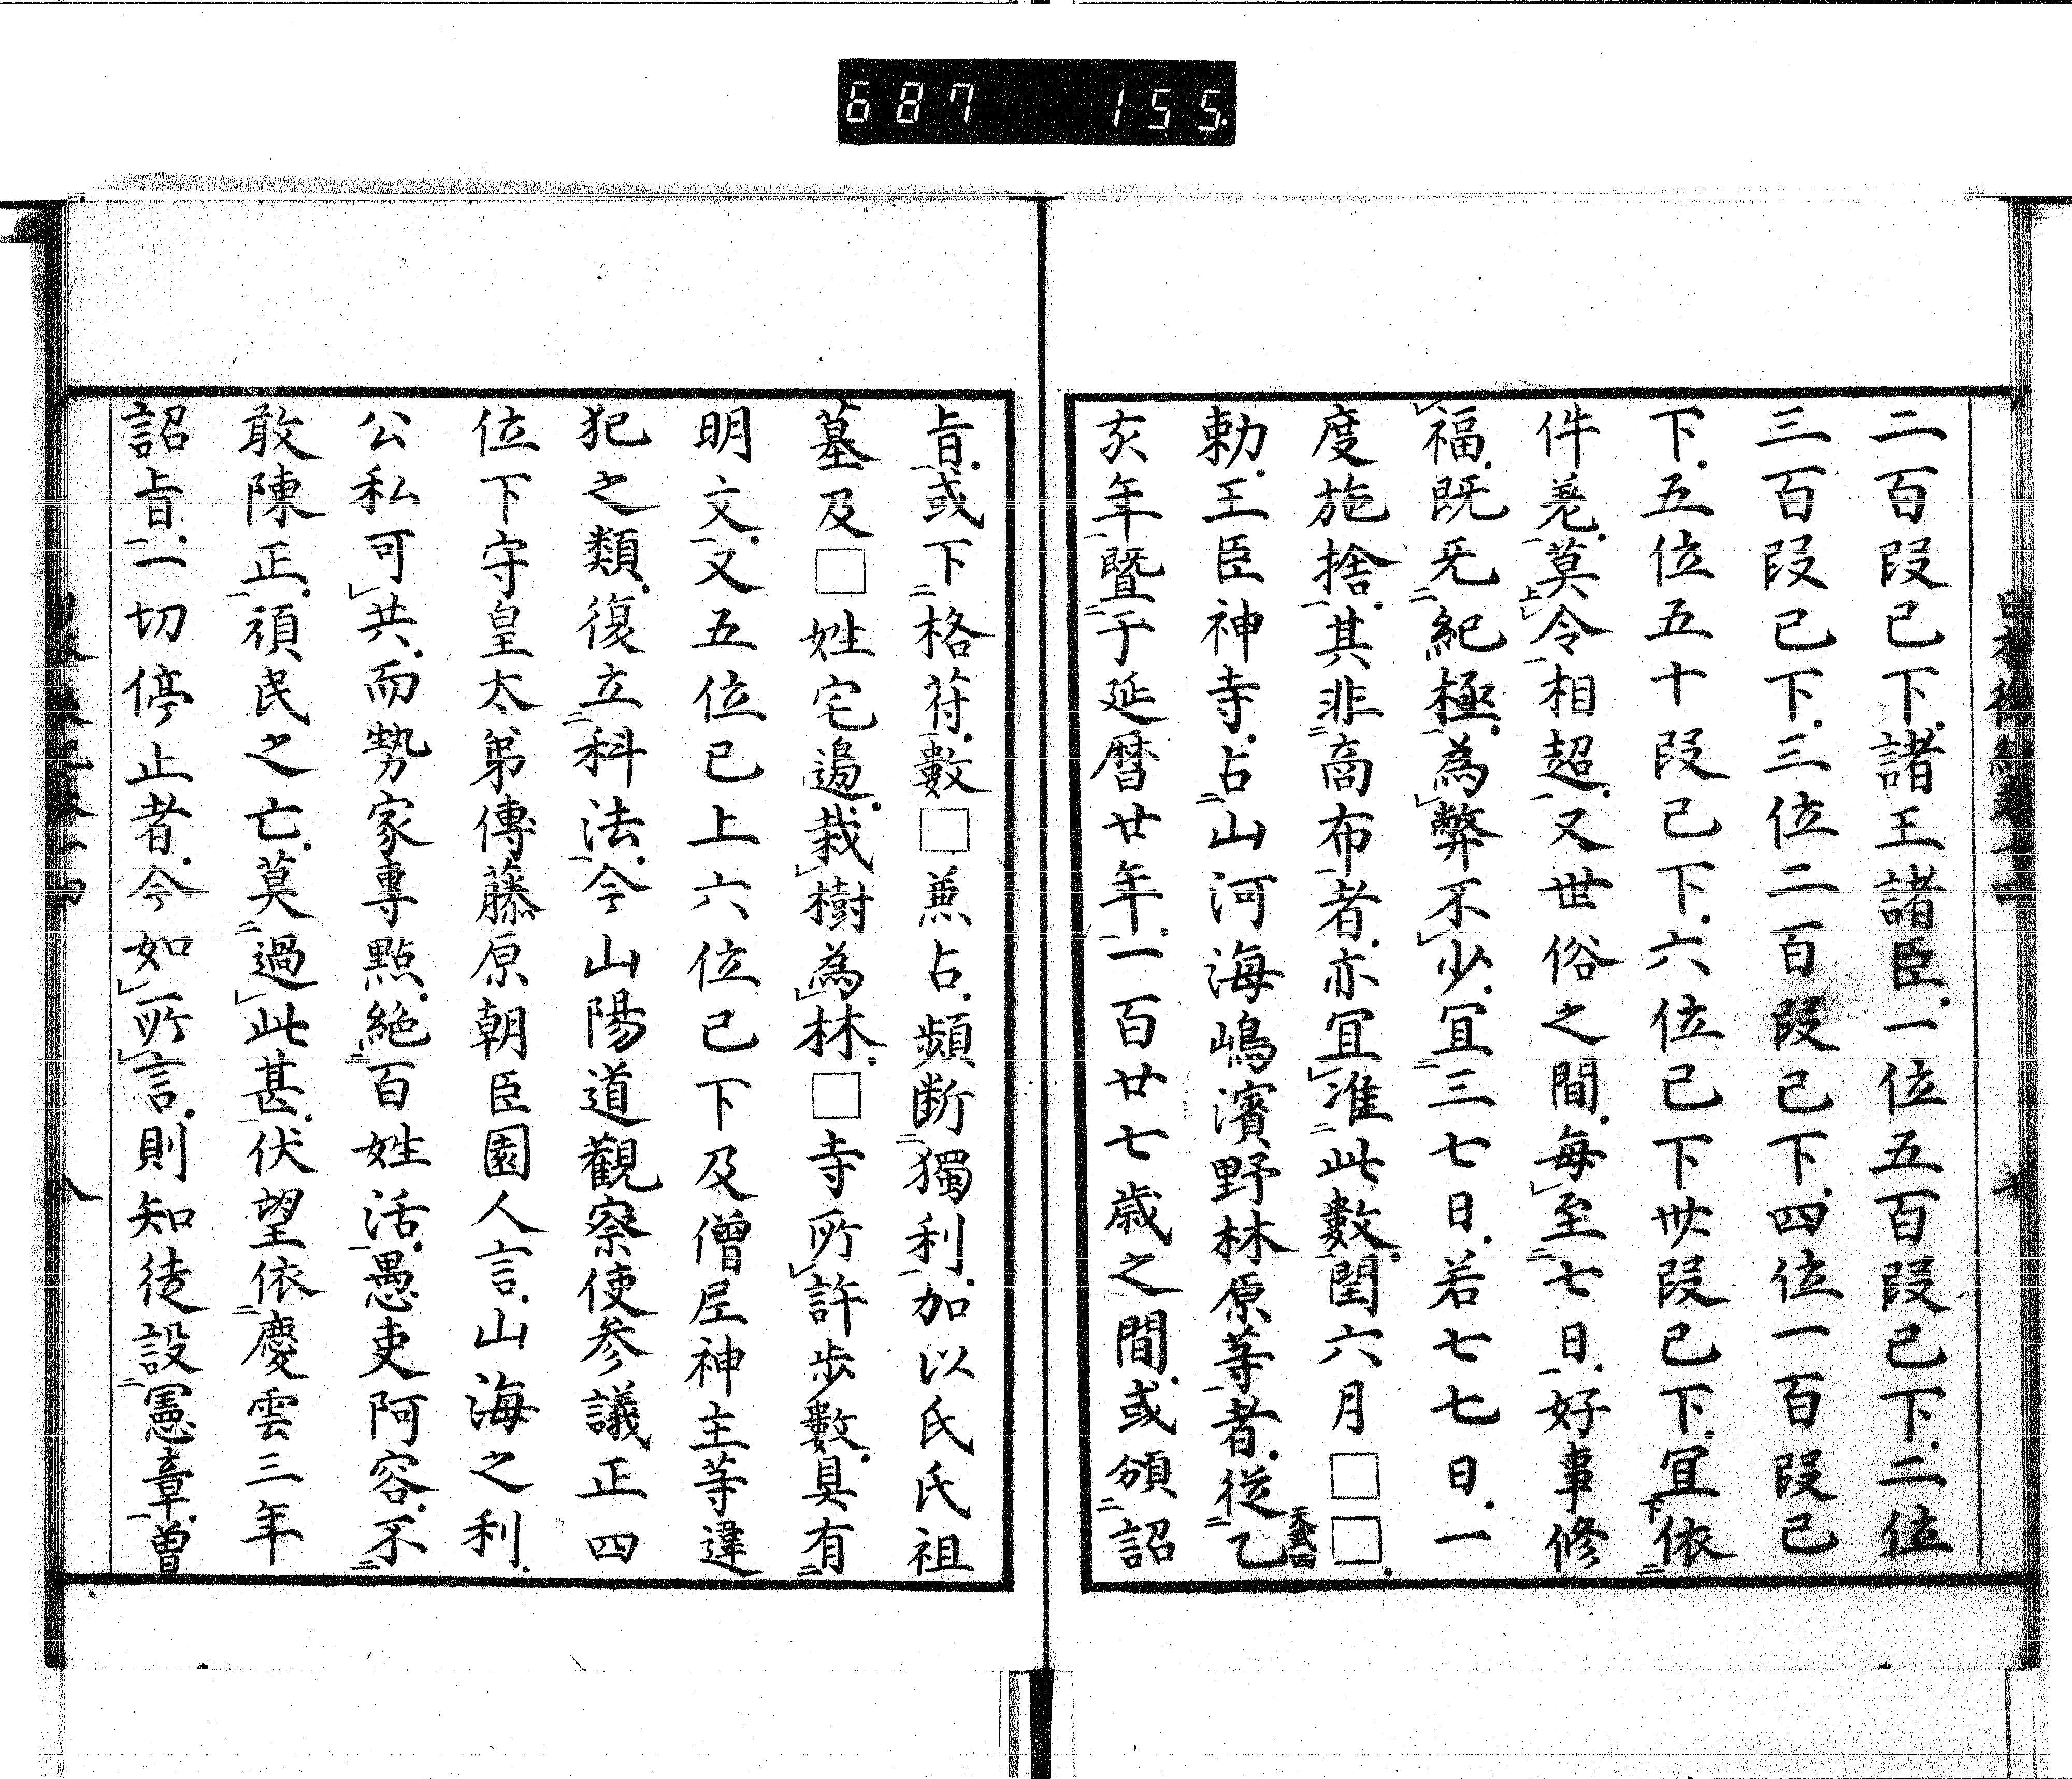 687 155.
二百段已下.諸王諸臣.一位五百段已下.二位
三百段已下.三位二百段已下.四位一百段已
下.五位五十段已下.六位已下卅段已下.宜依
件差.莫令相超.又世俗之間.每至七日.好事修
福.既无紀極.為弊不少.宜三七日.若七七日.一
度施捨.其非商布者.亦宜准此數.閏六月□□.
勅.王臣神寺.占山河海嶋濱野林原等者.從乙天武四
亥年暨于延曆廿年.一百廿七歲之間.或頒詔
旨.或下格符.數□兼占.頻斷獨利.加以氏氏祖
墓及□姓宅邊.栽樹為林.□寺所許步數.具有
明文.又五位已上六位已下及僧尼神主等違
犯之類.復立科法.今山陽道觀察使參議正四
位下守皇太弟傳藤原朝臣園人言.山海之利.
公私可共.而勢家專點.絕百姓活.愚吏阿容.不
敢陳正.頑民之亡.莫過此甚.伏望依慶雲三年
詔旨.一切停止者.今如所言.則知徒設憲章.曾